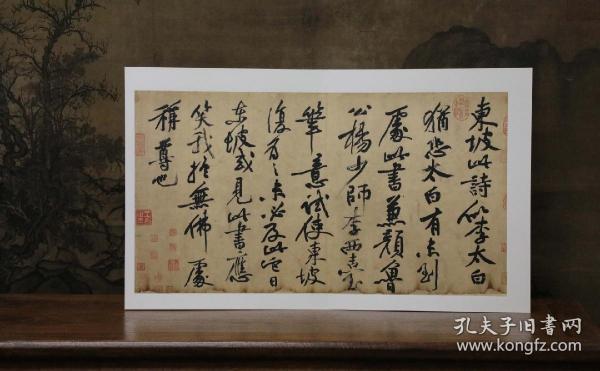 東坡此詩似李太白
猶恐太白有未到
處此書兼顏魯
公楊少師李西臺
筆意試使東坡
復為之未必及此它日
東坡或見此書應
笑我於無佛處
稱尊也
孔夫子旧书网
www.kongfz.com